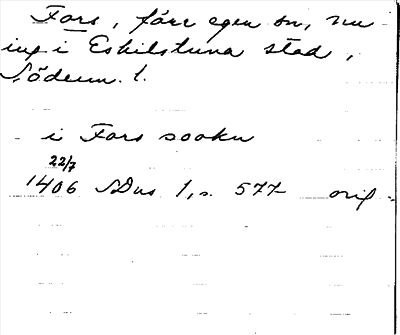 Fors, förr egen sn, nu
ing i Eskilstuna stad,
Söderm. l.
i Fors sookn
22/7
1406 SDns 1, s. 577 orig.